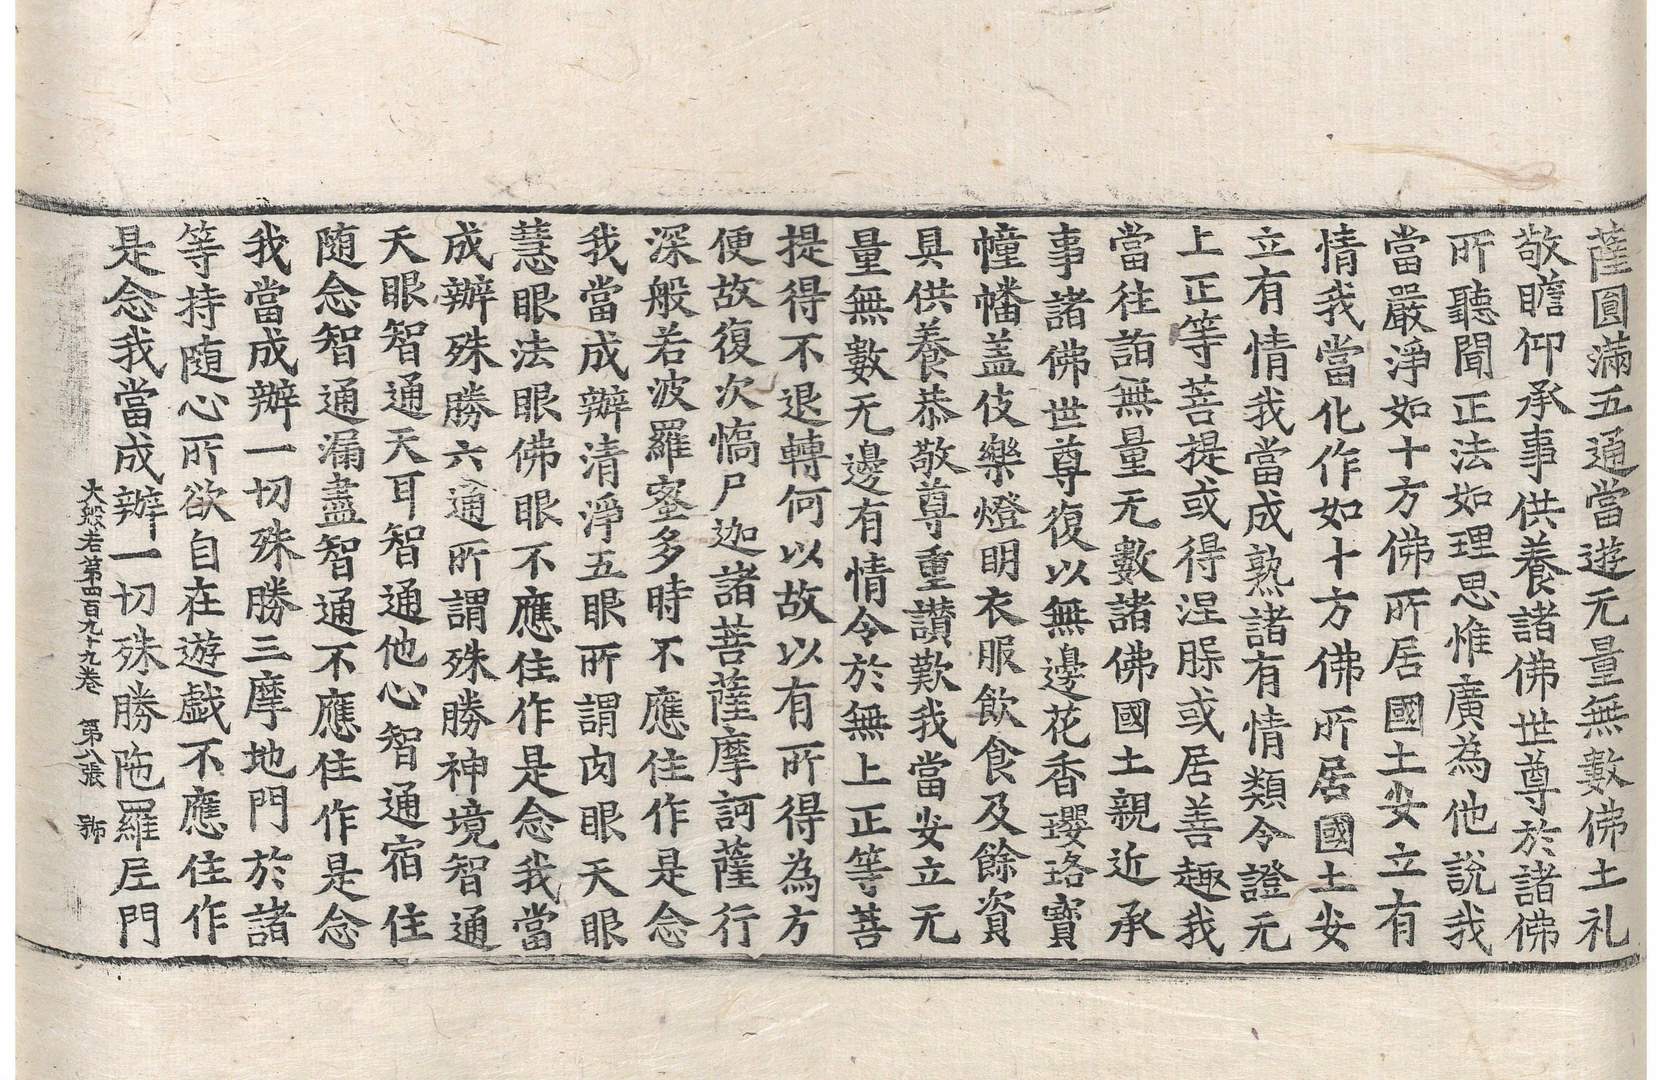 薩圓滿五通當遊无量無數佛土礼
敬瞻仰承事供養諸佛世尊於諸佛
所聽聞正法如理思惟廣為他說我
當嚴淨如十方佛所居國土安立有
情我當化作如十方佛所居國土安
立有情我當成熟諸有情類令證无
上正等菩提或得涅槃或居善趣我
當往詣無量无數諸佛國土親近承
事諸佛世尊復以無邊花香瓔珞寶
幢幡盖伎樂燈明衣服飲食及餘資
具供養恭敬尊重讃歎我當安立无
量無數无邊有情令於無上正等菩
提得不退轉何以故以有所得為方
便故復次憍尸迦諸菩薩摩訶薩行
深般若波羅蜜多時不應住作是念
我當成辦清淨五眼所謂肉眼天眼
慧眼法眼佛眼不應住作是念我當
成辦殊勝六通所謂殊勝神境智通
天眼智通天耳智通他心智通宿住
随念智通漏盡智通不應住作是念
我當成辦一切殊勝三摩地門於諸
等持随心所欲自在遊戲不應住作
是念我當成辦一切殊勝陁羅尼門
大般若第四百九十九卷 第八張 號